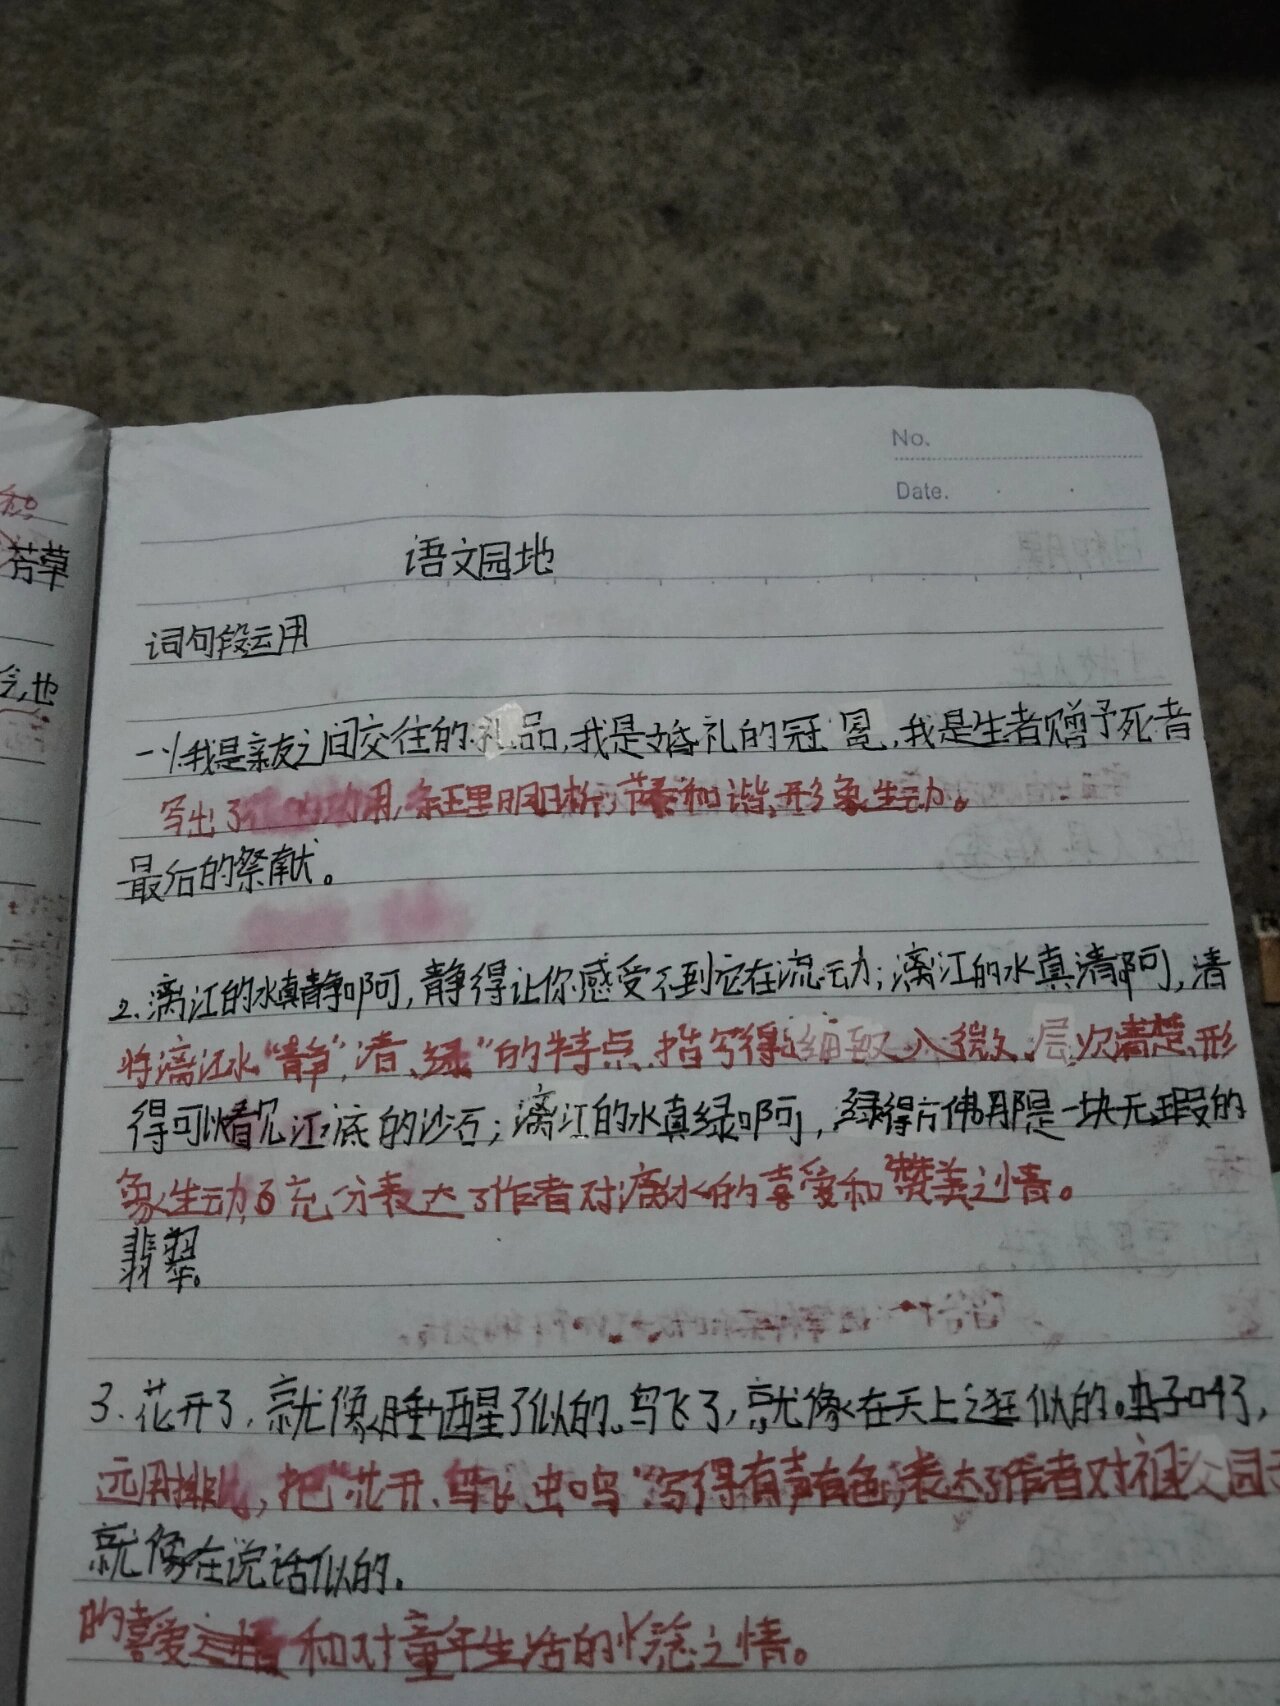 和
芳草
么,也
No.
Date.
语文园地
词句段运用
一、1.我是亲友之间交往的礼品,我是婚礼的冠冕,我是生者赠予死者
写出了 用,条理明晰,节奏和谐,形象生动。
最后的祭献。
2.漓江的水真静啊,静得让你感受不到它在流动;漓江的水真清啊,清
将漓江水"静","清、绿"的特点,描写得细致入微、层次清楚、形
得可以看见江底的沙石;漓江的水真绿啊,绿得仿佛那是一块无瑕的
象生动,充分表达了作者对漓水的喜爱和赞美之情。
翡翠。
3.花开了,就像睡醒了似的。鸟飞了,就像在天上逛似的。虫子叫了,
运用排比,把"花开、鸟飞、虫鸣"写得有声有色,表达了作者对祖父园子
就像在说话似的。
的喜爱之情和对童年生活的怀念之情。